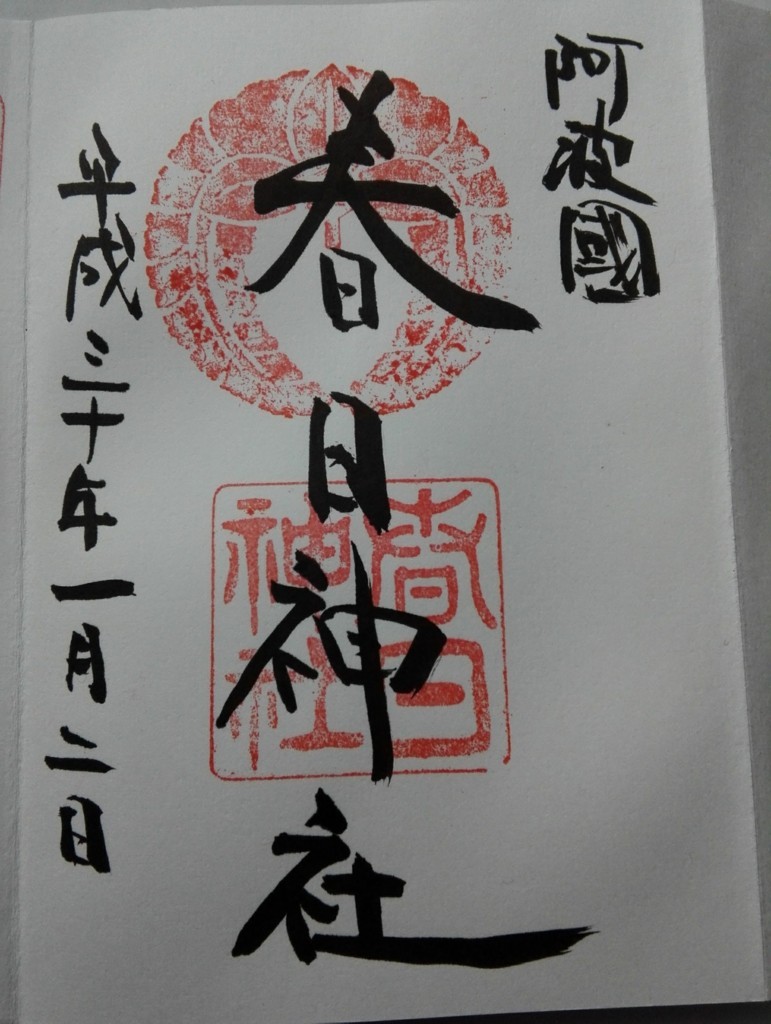 阿波國
春日神社
春日
神社
平成三十年一月二日